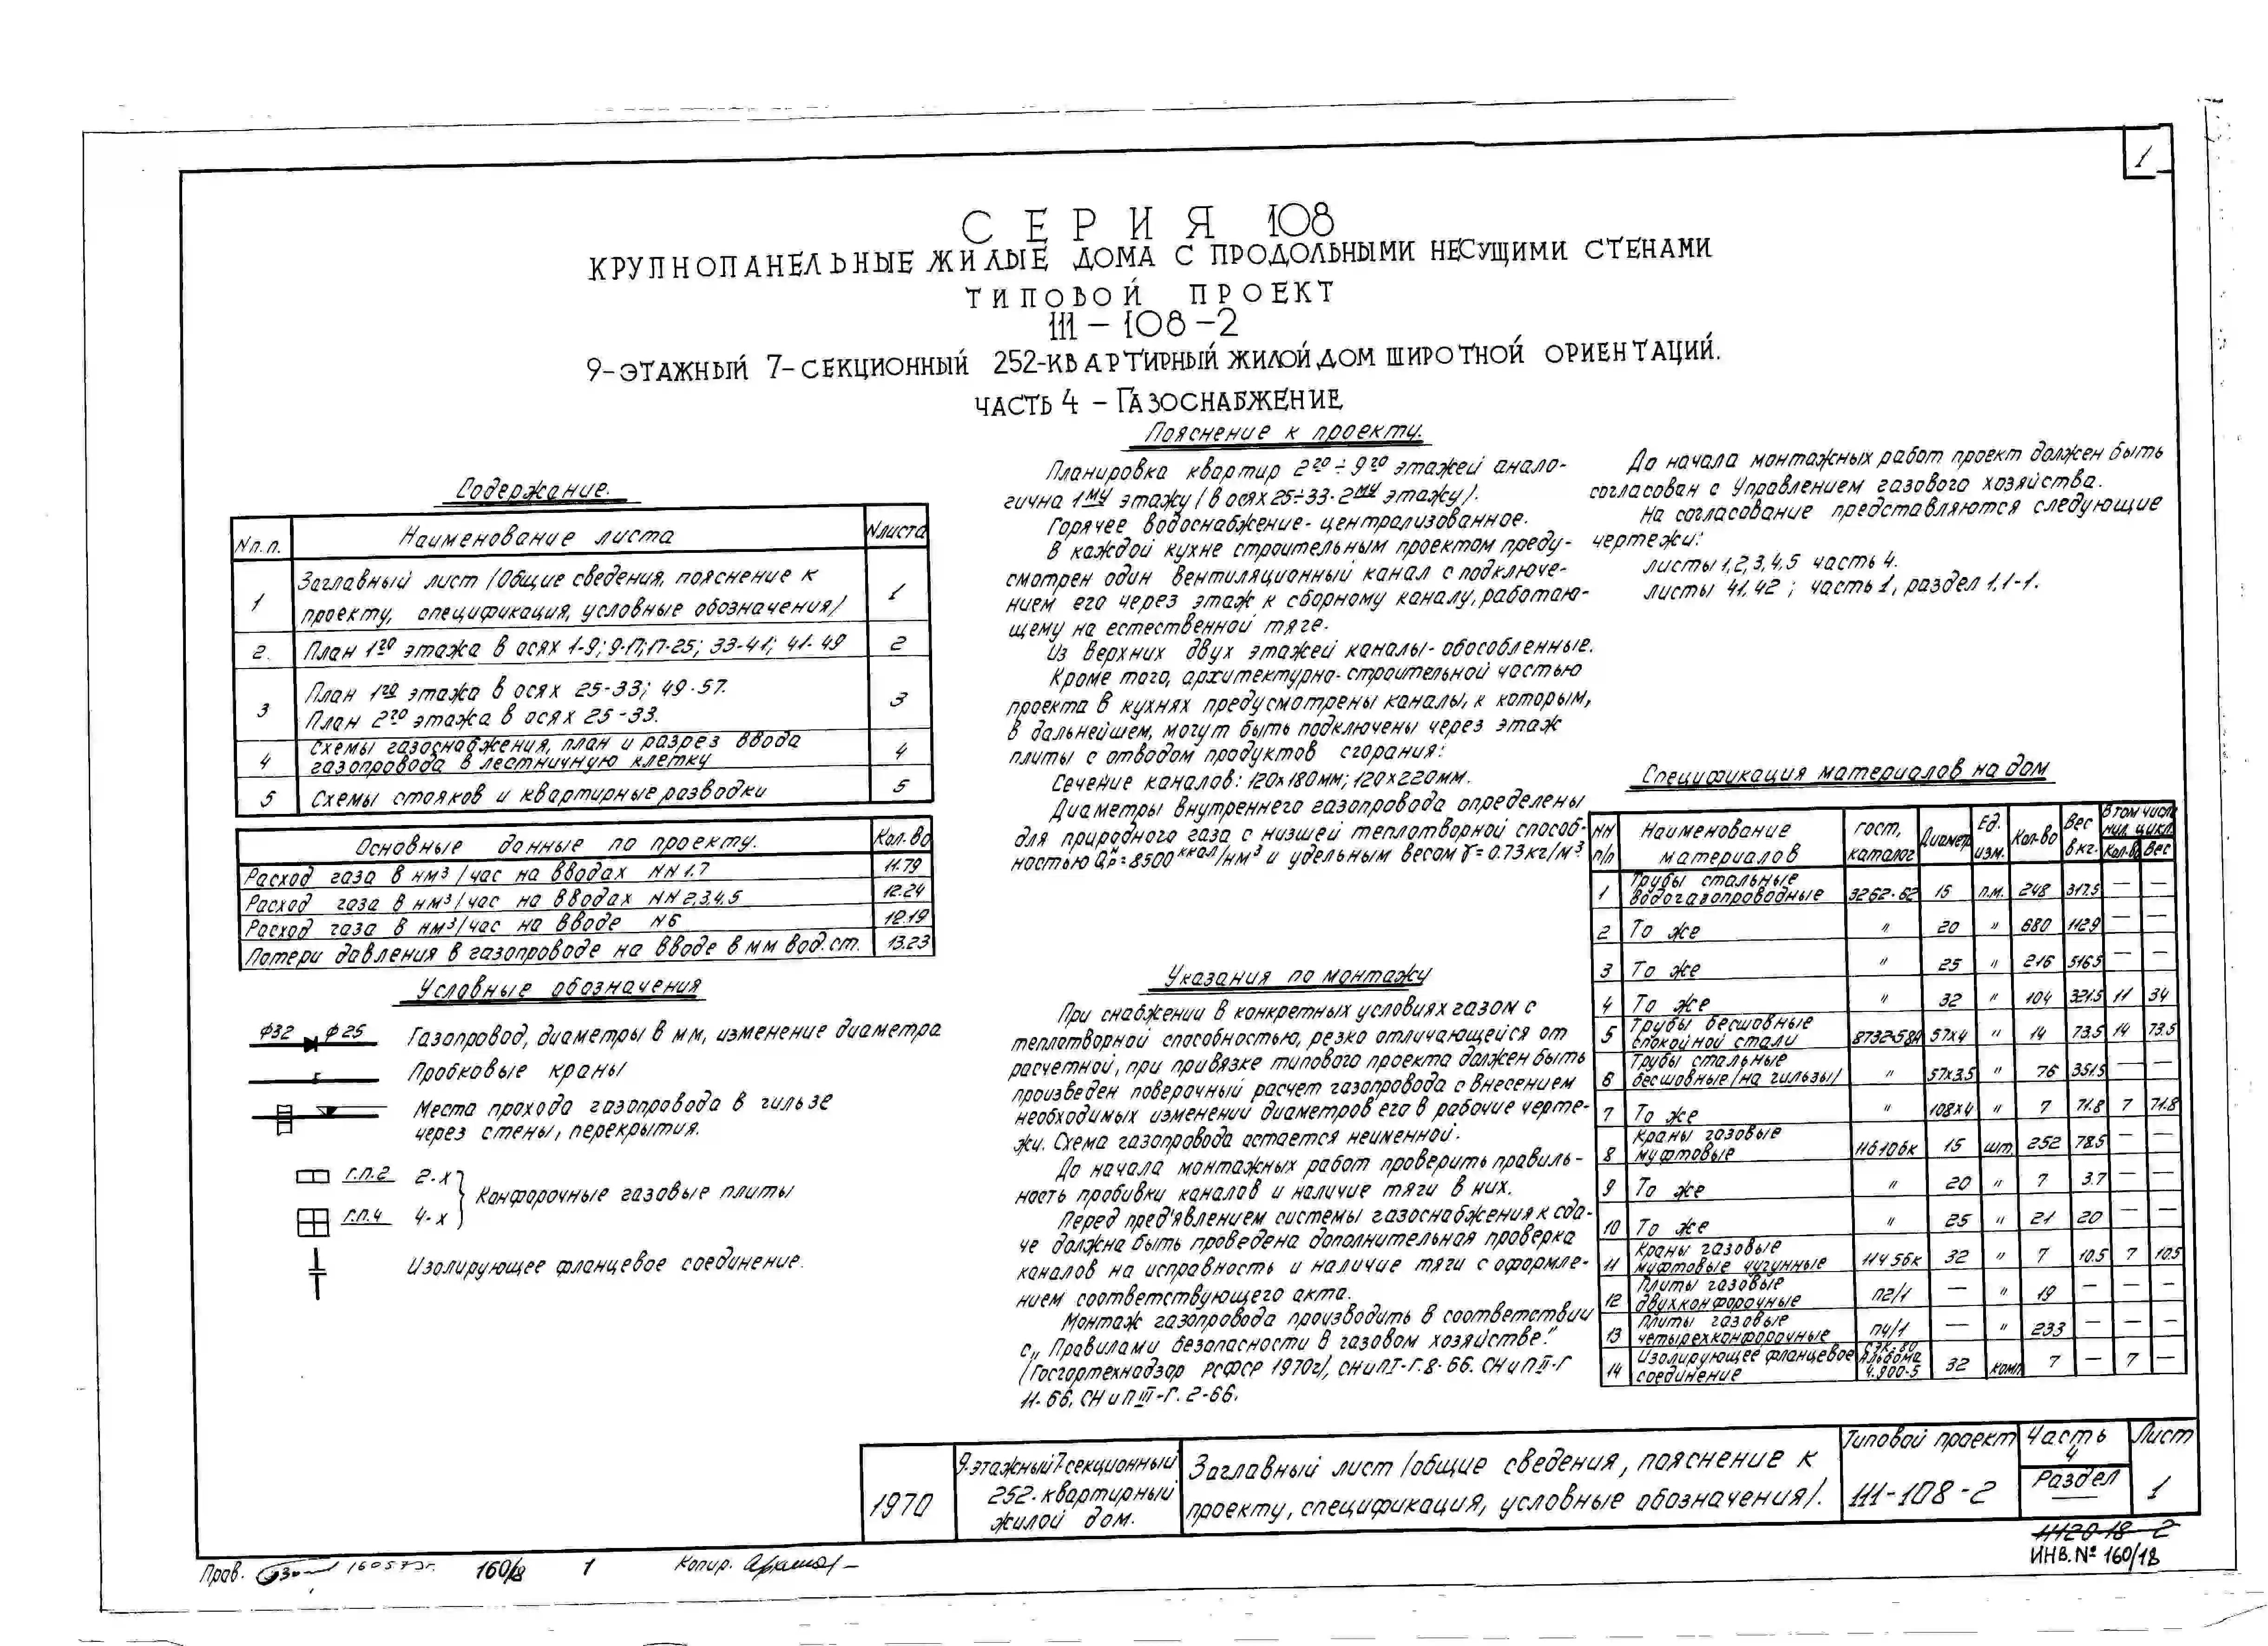 1
СЕРИЯ 108
КРУПНОПАНЕЛЬНЫЕ ЖИЛЫЕ ДОМА С ПРОДОЛЬНЫМИ НЕСУЩИМИ СТЕНАМИ
ТИПОВОЙ ПРОЕКТ
111-108-2
9-ЭТАЖНЫЙ 7-СЕКЦИОННЫЙ 252-КВАРТИРНЫЙ ЖИЛОЙ ДОМ ШИРОТНОЙ ОРИЕНТАЦИЙ.
ЧАСТЬ 4 - ГАЗОСНАБЖЕНИЕ
Содержание.
Nп.п. Наименование листа Nлиста
1 Заглавный лист /Общие сведения, пояснение к 1
проекту, спецификация, условные обозначения/
2. План 1го этажа в осях 1-9; 9-17; 17-25; 33-41; 41-49 2
3 План 1го этажа в осях 25-33; 49-57. 3
План 2го этажа в осях 25-33.
4 Схемы газоснабжения, план и разрез ввода 4
газопровода в лестничную клетку
5 Схемы стояков и квартирные разводки 5
Основные данные по проекту. Кол-во
Расход газа в нм³/час на вводах NN 1.7 11.79
Расход газа в нм³/час на вводах NN 2,3,4,5 12.24
Расход газа в нм³/час на вводе N6 12.19
Потери давления в газопроводе на вводе в мм вод.ст. 13.23
Условные обозначения
Ф32 Ф25 Газопровод, диаметры в мм, изменение диаметра
Пробковые краны
Места прохода газопровода в гильзе
через стены, перекрытия.
Г.П.2 2-х
Конфорочные газовые плиты
Г.П.4 4-х
Изолирующее фланцевое соединение.
Пояснение к проекту.
Планировка квартир 2го÷9го этажей анало-
гична 1му этажу /в осях 25÷33-2му этажу/.
Горячее водоснабжение- централизованное.
В каждой кухне строительным проектом преду-
смотрен один вентиляционный канал с подключе-
нием его через этаж к сборному каналу, работаю-
щему на естественной тяге.
Из верхних двух этажей каналы- обособленные.
Кроме того, архитектурно-строительной частью
проекта в кухнях предусмотрены каналы, к которым,
в дальнейшем, могут быть подключены через этаж
плиты с отводом продуктов сгорания:
Сечение каналов: 120х180мм; 120х220мм.
Диаметры внутреннего газопровода определены
для природного газа с низшей теплотворной способ-
ностью Qнр=8500 ккал/нм³ и удельным весом γ=0.73кг/м³.
Указания по монтажу
При снабжении в конкретных условиях газом с
теплотворной способностью, резко отличающейся от
расчетной, при привязке типового проекта должен быть
произведен поверочный расчет газопровода с внесением
необходимых изменений диаметров его в рабочие черте-
жи. Схема газопровода остается неименной.
До начала монтажных работ проверить правиль-
ность пробивки каналов и наличие тяги в них.
Перед пред'явлением системы газоснабжения к сда-
че должна быть проведена дополнительная проверка
каналов на исправность и наличие тяги с оформле-
нием соответствующего акта.
Монтаж газопровода производить в соответствии
с „Правилами безопасности в газовом хозяйстве."
(Госгортехнадзор РСФСР 1970г), СНиПI-Г.8-66. СНиПII-Г
11-66, СНиПIII-Г. 2-66.
До начала монтажных работ проект должен быть
согласован с Управлением газового хозяйства.
На согласование представляются следующие
чертежи:
листы 1,2,3,4,5 часть 4.
листы 41,42 ; часть 1, раздел 1.1-1.
Спецификация материалов на дом
NN п/п Наименование материалов гост, каталог Диаметр Ед. изм. Кол-во Вес в кг. В том числе нул. цикл. Кол-во Вес
1 Трубы стальные водогазопроводные 3262-62 15 п.м. 248 317.5 — —
2 То же " 20 " 680 1129 — —
3 То же " 25 " 216 516.5 — —
4 То же " 32 " 104 321.5 11 34
5 Трубы бесшовные спокойной стали 8732-58А 57х4 " 14 73.5 14 73.5
6 Трубы стальные бесшовные /на гильзы/ " 57х3.5 " 76 351.5 — —
7 То же " 108х4 " 7 71.8 7 71.8
8 Краны газовые муфтовые 11б10бк 15 шт. 252 78.5 — —
9 То же " 20 " 7 3.7 — —
10 То же " 25 " 21 20 — —
11 Краны газовые муфтовые чугунные 11ч5бк 32 " 7 10.5 7 10.5
12 Плиты газовые двухконфорочные П2/1 — " 19 — — —
13 Плиты газовые четырехконфорочные П4/1 — " 233 — — —
14 Изолирующее фланцевое соединение альбома 4.900-5 32 комп 7 — 7 —
1970
9-этажный 7-секционный
252-квартирный
жилой дом.
Заглавный лист /общие сведения, пояснение к
проекту, спецификация, условные обозначения/.
Типовой проект
111-108-2
Часть
4
Раздел
—
Лист
1
11120-18 2
ИНВ.№ 160/18
Прав. 160573г. 160/18 1 Копир.